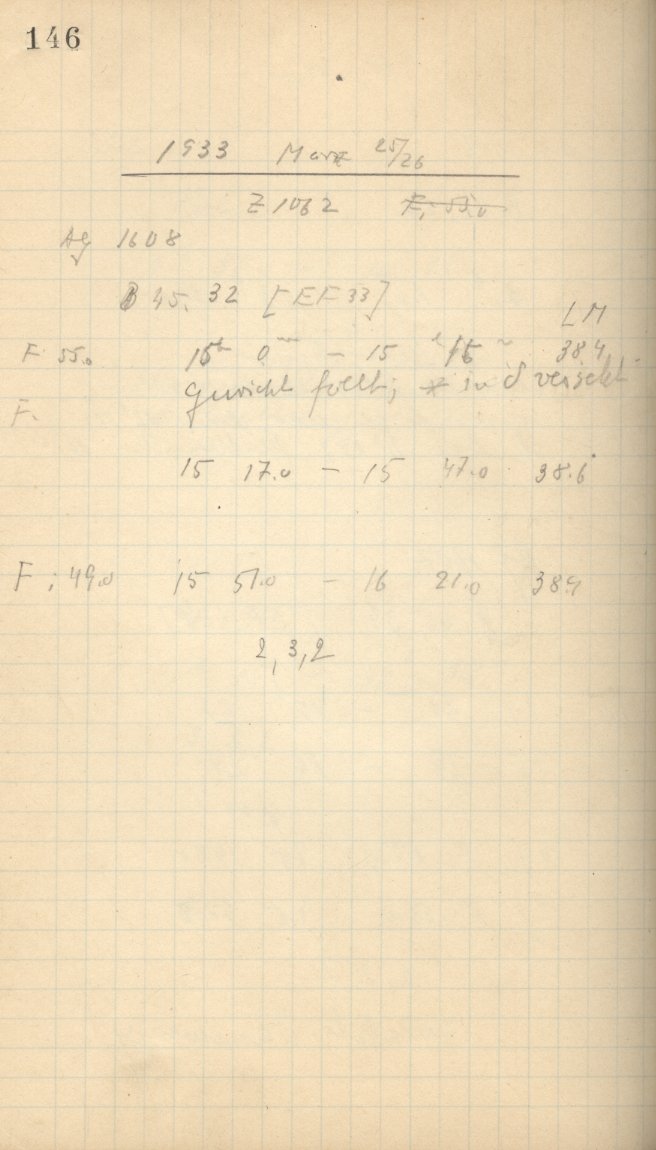 146
1933 März 25/26
Z 1062 F; 55.0
Ag 1608
B 45. 32 [EF 33]
LM
F 55.0 15h 0m – 15h 15m 38.4
Gewicht fällt; * in δ versetzt.
F.
15 17.0 – 15 47.0 38.6
F; 49.0 15 51.0 – 16 21.0 38.9
2, 3, 2